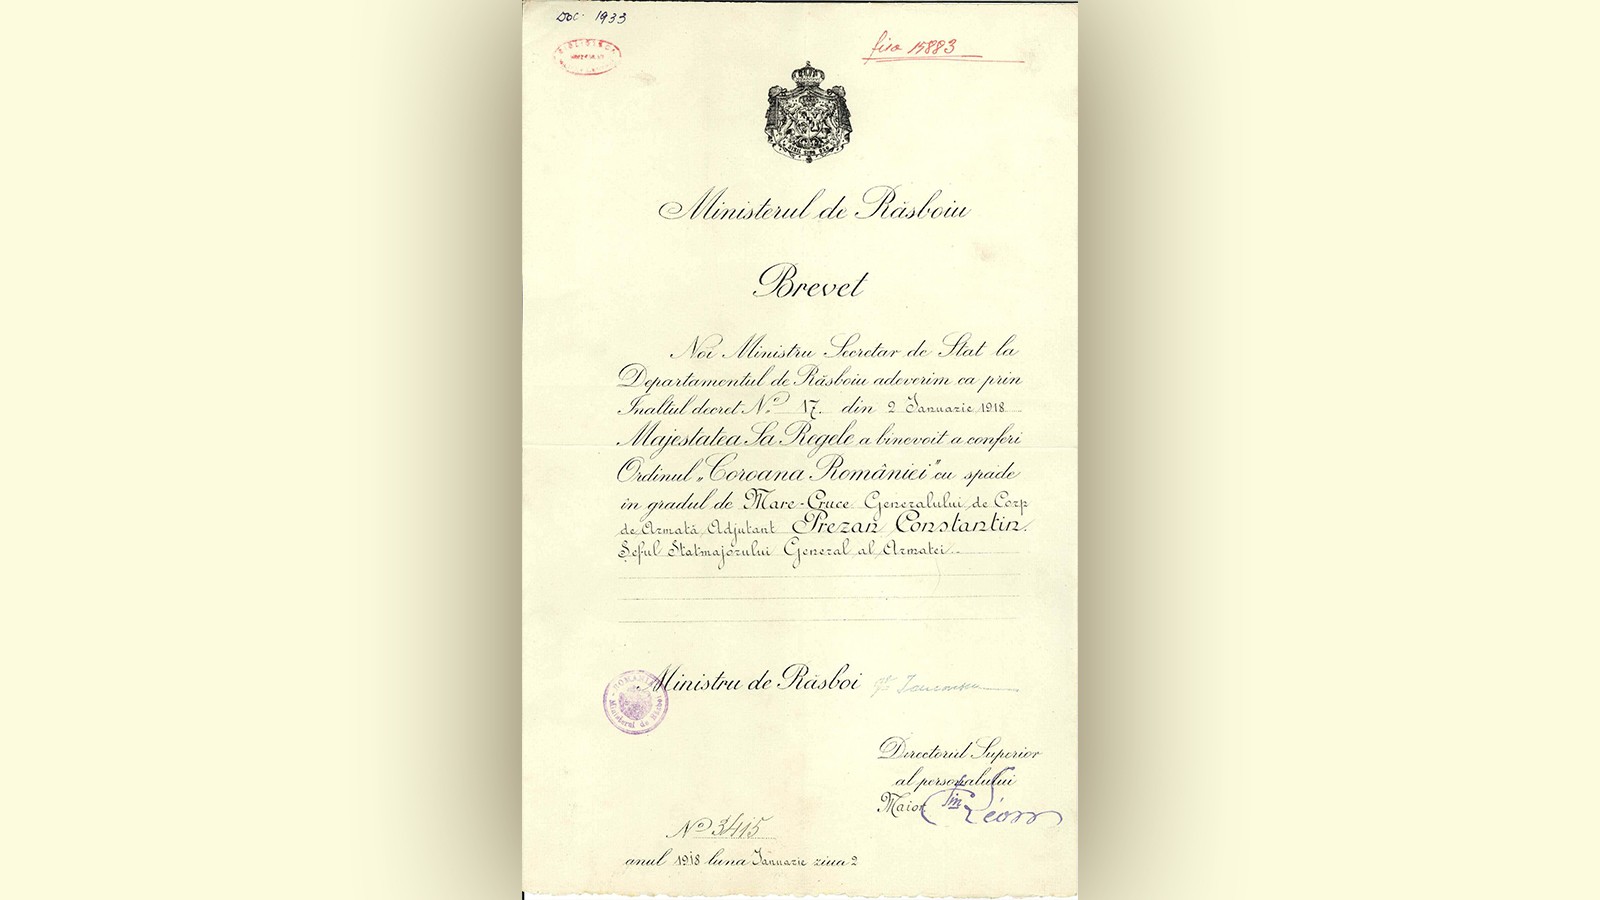 Doc. 1933
fișa 15883
NIHIL SINE DEO
Ministerul de Răsboiu
Brevet
Noi Ministru Secretar de Stat la
Departamentul de Răsboiu adeverim ca prin
Inaltul decret No. 17. din 2 Ianuarie 1918
Majestatea Sa Regele a binevoit a conferi
Ordinul „Coroana României" cu spade
in gradul de Mare-Cruce Generalului de Corp
de Armată Adjutant Prezan Constantin.
Șeful Statmajorului General al Armatei.
Ministru de Răsboi
ROMANIA
Ministerul de Răsboi
Directorul Superior
al personalului
Maior
No 3415
anul 1918 luna Ianuarie ziua 2